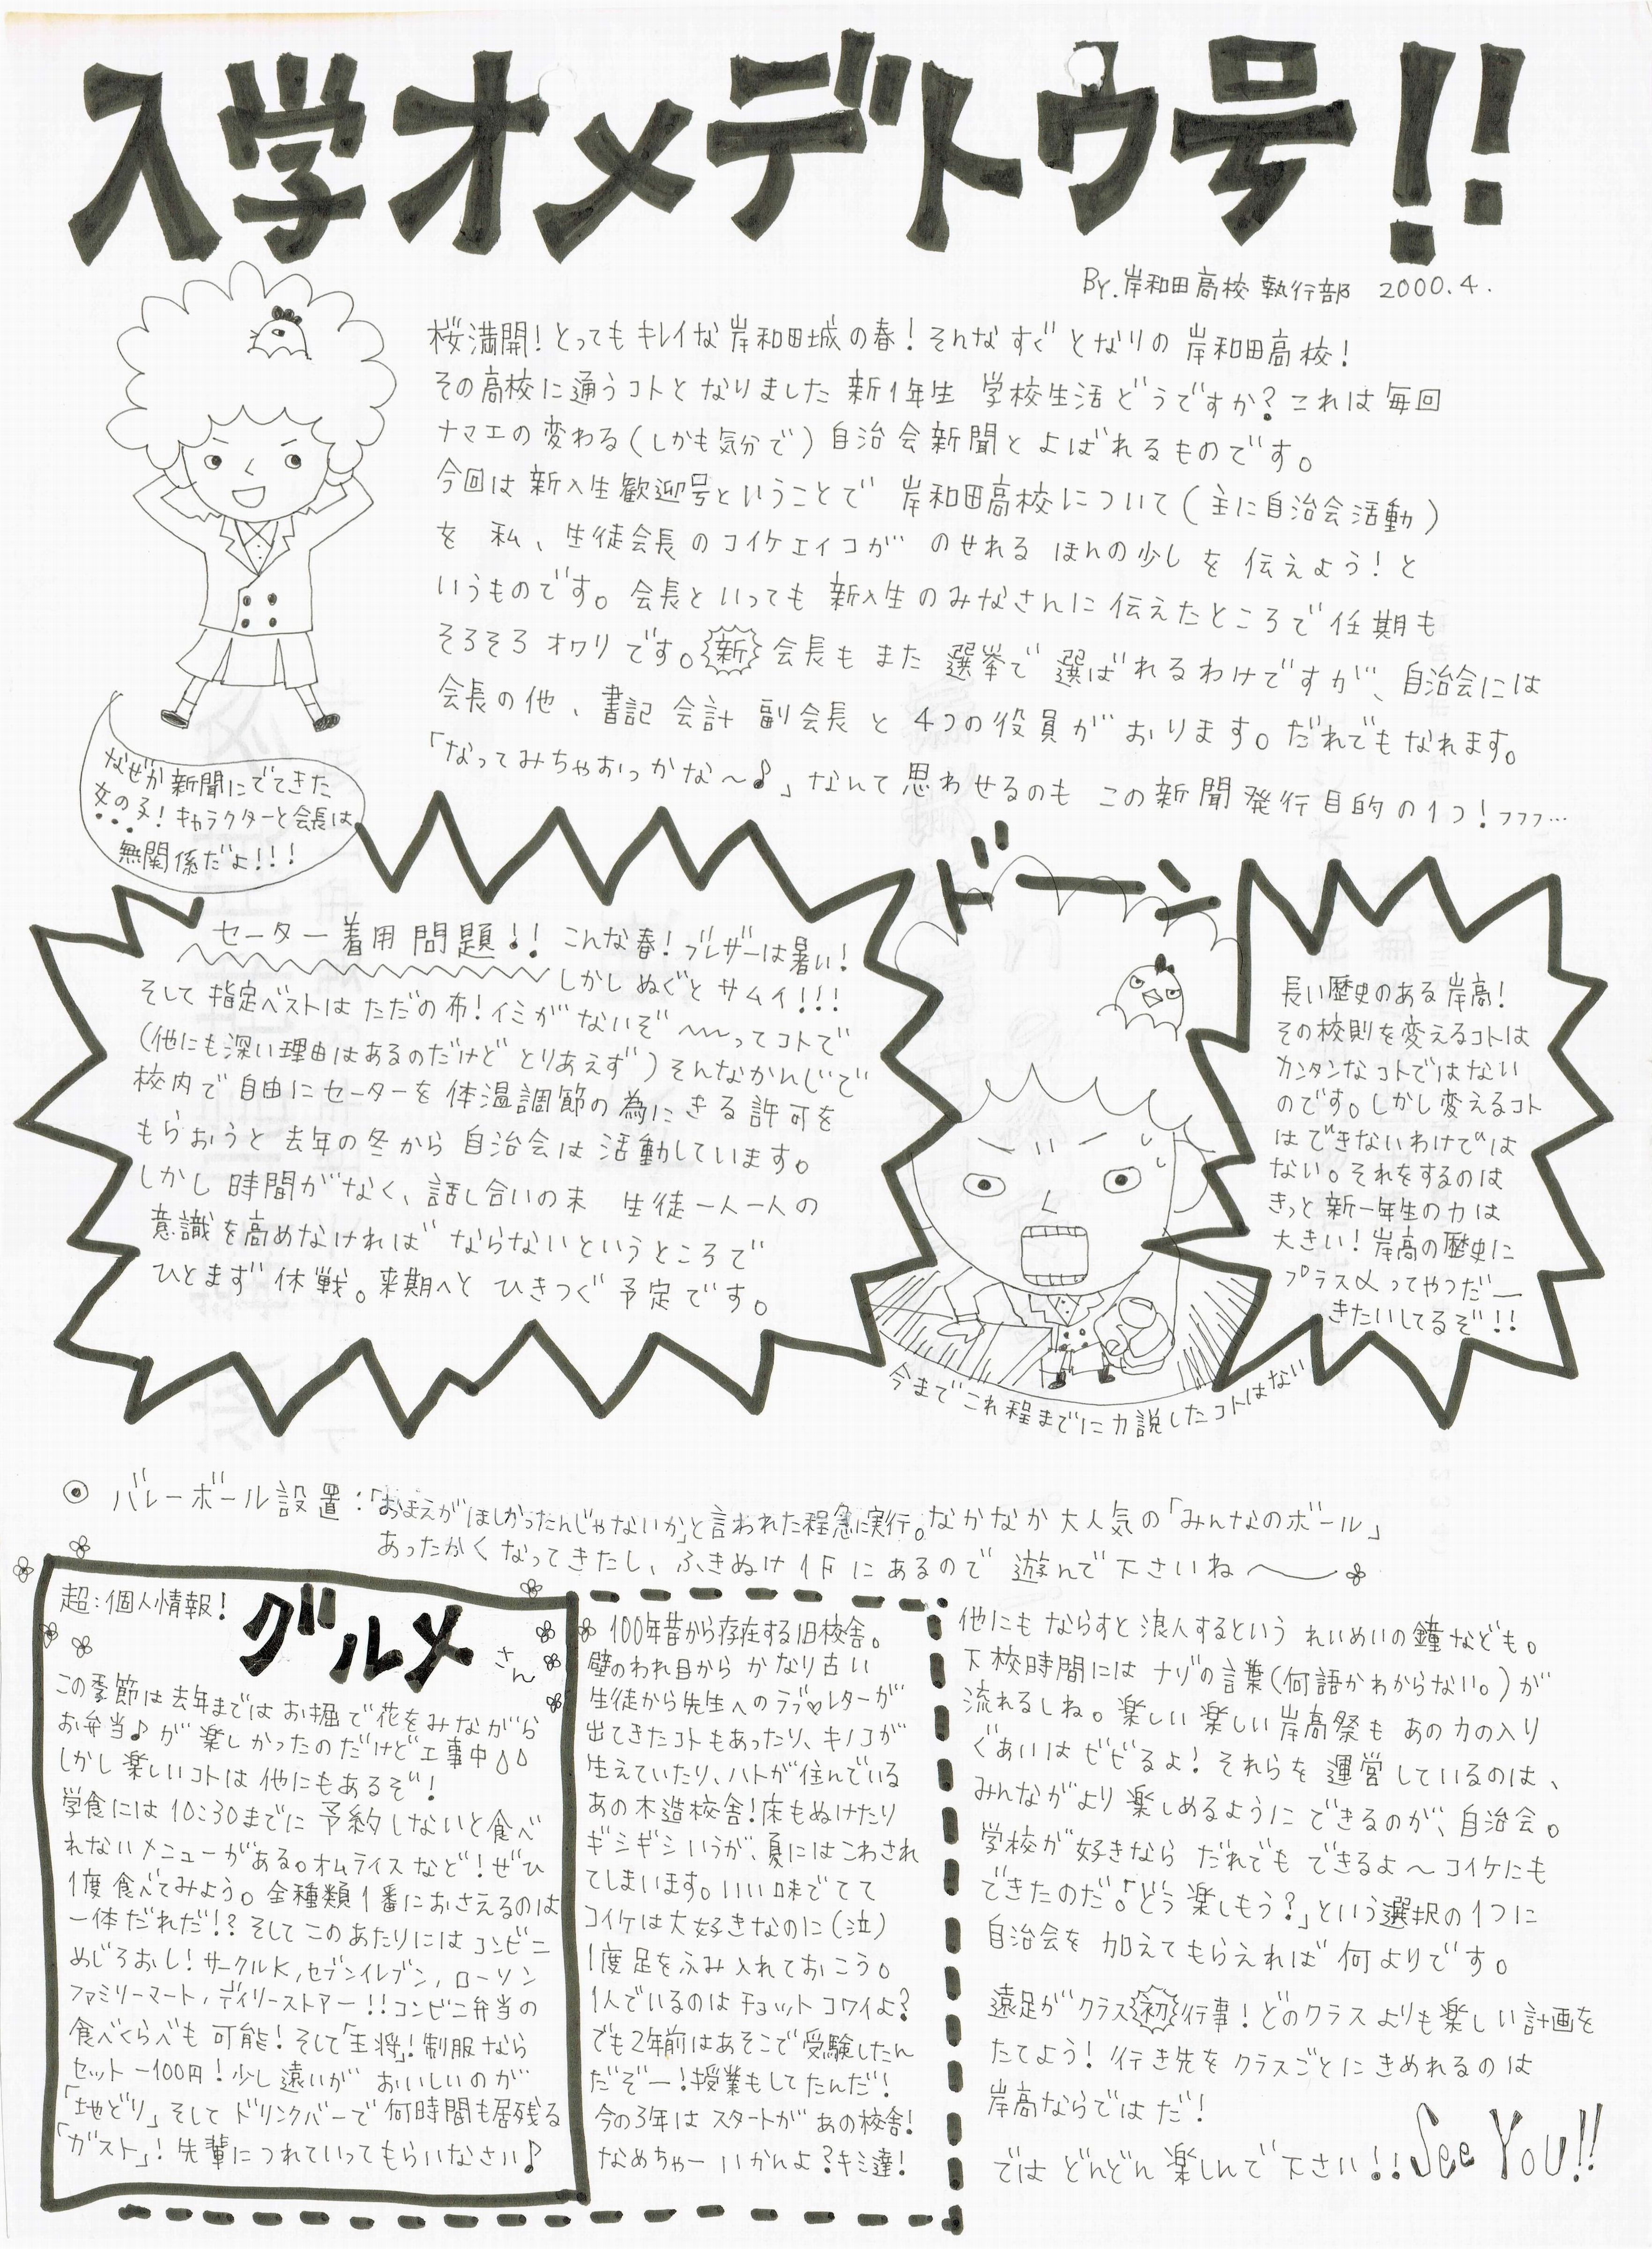 入学オメデトウ号!!
By.岸和田高校 執行部 2000.4.
桜満開!とってもキレイな岸和田城の春!そんなすぐとなりの岸和田高校!
その高校に通うコトとなりました新1年生 学校生活どうですか?これは毎回
ナマエの変わる(しかも気分で)自治会新聞とよばれるものです。
今回は新入生歓迎号ということで 岸和田高校について(主に自治会活動)
を 私、生徒会長のコイケエイコが のせれる ほんの少しを 伝えよう!と
いうものです。会長といっても 新入生のみなさんに伝えたところで任期も
そろそろオワリです。新会長もまた 選挙で選ばれるわけですが、自治会には
会長の他、書記 会計 副会長 と 4つの役員が おります。だれでもなれます。
「なってみちゃおっかな〜♪」なんて思わせるのも この新聞発行目的の1つ!フフフ…
なぜか新聞にでてきた
女の子!キャラクターと会長は
無関係だよ!!!
セーター着用問題!! こんな春!ブレザーは暑い!
しかしぬぐとサムイ!!!
そして指定ベストはただの布!イミがないぞ〜〜ってコトで
(他にも深い理由はあるのだけど とりあえず)そんなかんじで
校内で自由にセーターを体温調節の為にきる許可を
もらおうと去年の冬から 自治会は活動しています。
しかし時間がなく、話し合いの末 生徒一人一人の
意識を高めなければ ならないというところで
ひとまず休戦。来期へとひきつぐ予定です。
ドーン
今までこれ程までに力説したコトはない
長い歴史のある岸高!
その校則を変えるコトは
カンタンなコトではない
のです。しかし変えるコト
はできないわけでは
ない。それをするのは
きっと新一年生の力は
大きい!岸高の歴史に
プラスαってやつだー
きたいしてるぞ!!
◉ バレーボール設置:「おまえがほしかったんじゃないか」と言われた程急に実行。なかなか大人気の「みんなのボール」
あったかくなってきたし、ふきぬけ1Fにあるので 遊んで下さいね〜
超:個人情報!
グルメさん
この季節は去年まではお堀で花をみながら
お弁当♪が楽しかったのだけど工事中
しかし楽しいコトは他にもあるぞ!
学食には10:30までに予約しないと食べ
れないメニューがある。オムライスなど!ぜひ
1度食べてみよう。全種類1番におさえるのは
一体だれだ!?そしてこのあたりにはコンビニ
めじろおし!サークルK,セブンイレブン,ローソン
ファミリーマート,デイリーストアー!!コンビニ弁当の
食べくらべも可能!そして「王将」!制服なら
セット−100円!少し遠いが おいしいのが
「地どり」そしてドリンクバーで何時間も居残る
「ガスト」!先輩につれていってもらいなさい♪
100年昔から存在する旧校舎。
壁のわれ目から かなり古い
生徒から先生へのラブ♡レターが
出てきたコトもあったり、キノコが
生えていたり、ハトが住んでいる
あの木造校舎!床もぬけたり
ギシギシいうが、夏にはこわされ
てしまいます。いい味でてて
コイケは大好きなのに(泣)
1度足をふみ入れておこう。
1人でいるのはチョットコワイよ?
でも2年前はあそこで受験したん
だぞー!授業もしてたんだ!
今の3年はスタートが あの校舎!
なめちゃーいかんよ?キミ達!
他にもならすと浪人するという れいめいの鐘なども。
下校時間にはナゾの言葉(何語かわからない。)が
流れるしね。楽しい楽しい岸高祭も あの力の入り
ぐあいはビビるよ!それらを運営しているのは、
みんながより楽しめるようにできるのが、自治会。
学校が好きなら だれでもできるよ〜コイケにも
できたのだ。「どう楽しもう?」という選択の1つに
自治会を加えてもらえれば何よりです。
遠足がクラス初行事!どのクラスよりも楽しい計画を
たてよう!行き先をクラスごとにきめれるのは
岸高ならではだ!
では どんどん楽しんで下さい!! See You!!